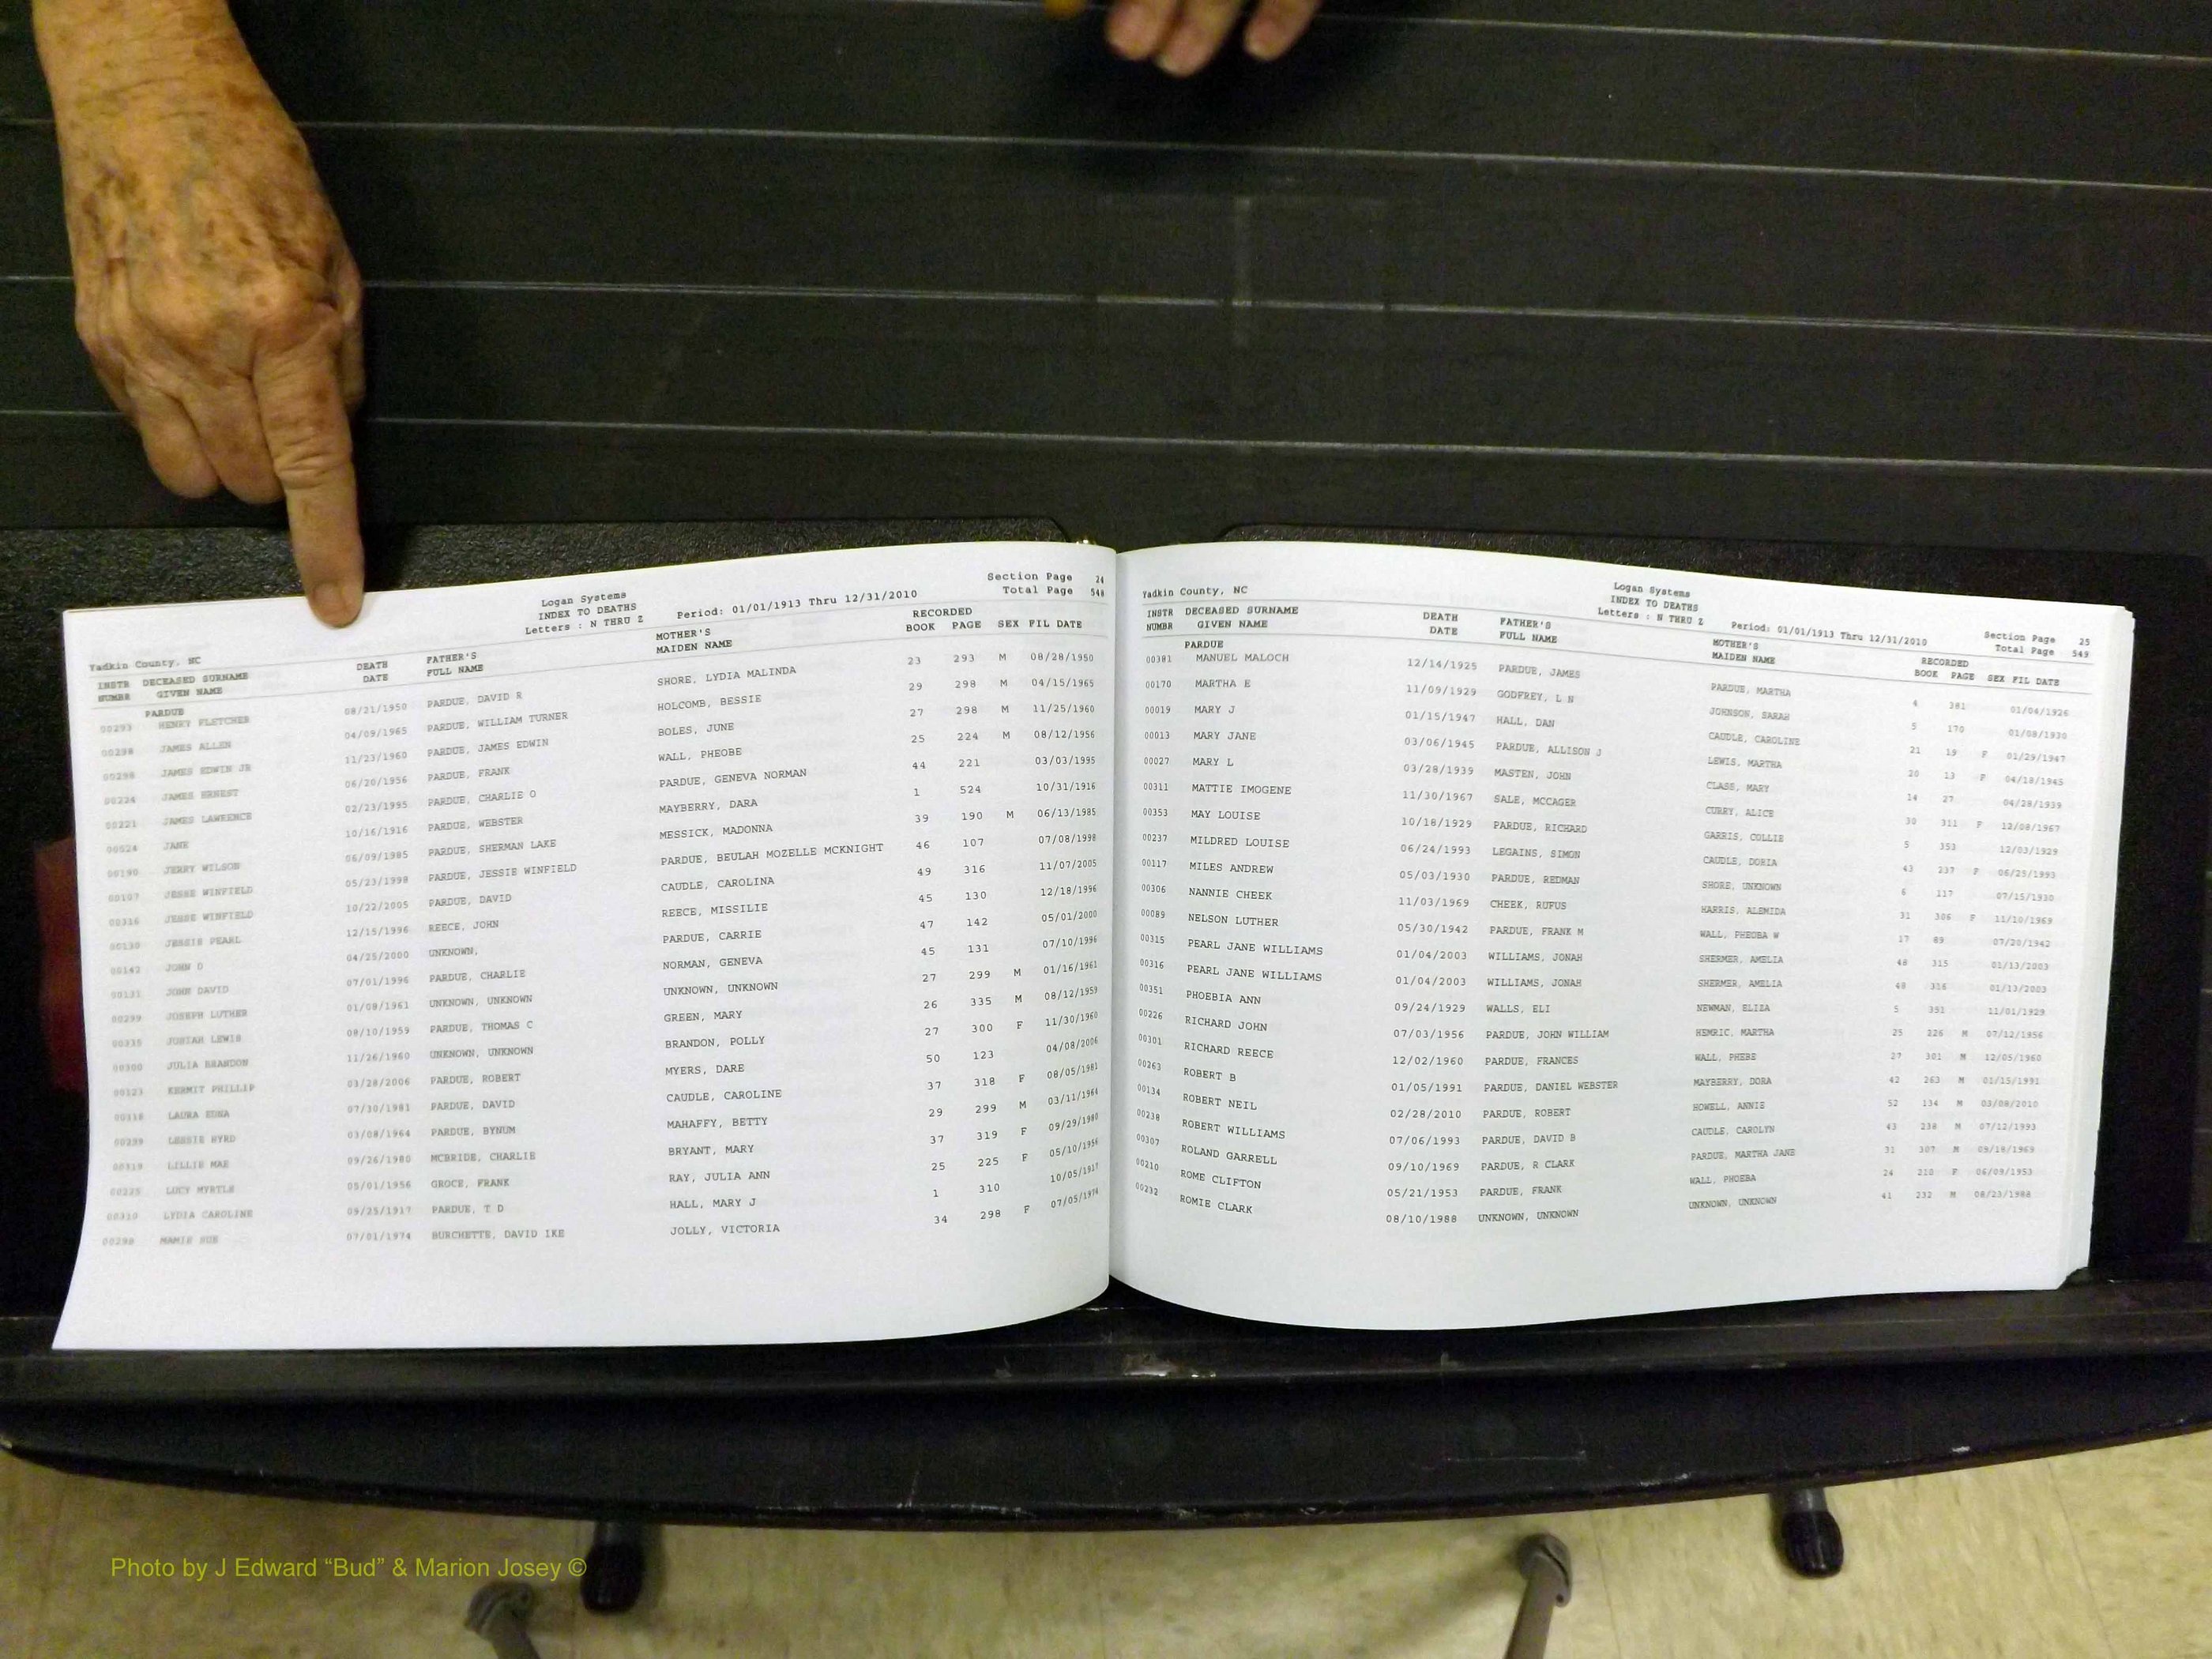 Yadkin County, NC
Logan Systems
INDEX TO DEATHS
Letters : N THRU Z
Period: 01/01/1913 Thru 12/31/2010
Section Page 24
Total Page 548
INSTR DECEASED SURNAME DEATH FATHER'S MOTHER'S RECORDED
NUMBR GIVEN NAME DATE FULL NAME MAIDEN NAME BOOK PAGE SEX FIL DATE
PARDUE
00293 HENRY FLETCHER 08/21/1950 PARDUE, DAVID R SHORE, LYDIA MALINDA 23 293 M 08/28/1950
00298 JAMES ALLEN 04/09/1965 PARDUE, WILLIAM TURNER HOLCOMB, BESSIE 29 298 M 04/15/1965
00298 JAMES EDWIN JR 11/23/1960 PARDUE, JAMES EDWIN BOLES, JUNE 27 298 M 11/25/1960
00224 JAMES ERNEST 06/20/1956 PARDUE, FRANK WALL, PHEOBE 25 224 M 08/12/1956
00221 JAMES LAWRENCE 02/23/1995 PARDUE, CHARLIE O PARDUE, GENEVA NORMAN 44 221 03/03/1995
00524 JANE 10/16/1916 PARDUE, WEBSTER MAYBERRY, DARA 1 524 10/31/1916
00190 JERRY WILSON 06/09/1985 PARDUE, SHERMAN LAKE MESSICK, MADONNA 39 190 M 06/13/1985
00107 JESSE WINFIELD 05/23/1998 PARDUE, JESSIE WINFIELD PARDUE, BEULAH MOZELLE MCKNIGHT 46 107 07/08/1998
00316 JESSE WINFIELD 10/22/2005 PARDUE, DAVID CAUDLE, CAROLINA 49 316 11/07/2005
00130 JESSIE PEARL 12/15/1996 REECE, JOHN REECE, MISSILIE 45 130 12/18/1996
00142 JOHN O 04/25/2000 UNKNOWN, PARDUE, CARRIE 47 142 05/01/2000
00131 JOHN DAVID 07/01/1996 PARDUE, CHARLIE NORMAN, GENEVA 45 131 07/10/1996
00299 JOSEPH LUTHER 01/08/1961 UNKNOWN, UNKNOWN UNKNOWN, UNKNOWN 27 299 M 01/16/1961
00335 JOSIAH LEWIS 08/10/1959 PARDUE, THOMAS C GREEN, MARY 26 335 M 08/12/1959
00300 JULIA BRANDON 11/26/1960 UNKNOWN, UNKNOWN BRANDON, POLLY 27 300 F 11/30/1960
00123 KERMIT PHILLIP 03/28/2006 PARDUE, ROBERT MYERS, DARE 50 123 04/08/2006
00318 LAURA EDNA 07/30/1981 PARDUE, DAVID CAUDLE, CAROLINE 37 318 F 08/05/1981
00299 LESSIE BYRD 03/08/1964 PARDUE, BYNUM MAHAFFY, BETTY 29 299 M 03/11/1964
00319 LILLIE MAE 09/26/1980 MCBRIDE, CHARLIE BRYANT, MARY 37 319 F 09/29/1980
00225 LUCY MYRTLE 05/01/1956 GROCE, FRANK RAY, JULIA ANN 25 225 F 05/10/1956
00310 LYDIA CAROLINE 09/25/1917 PARDUE, T D HALL, MARY J 1 310 10/05/1917
00298 MAMIE SUE 07/01/1974 BURCHETTE, DAVID IKE JOLLY, VICTORIA 34 298 F 07/05/1974
Yadkin County, NC
Logan Systems
INDEX TO DEATHS
Letters : N THRU Z
Period: 01/01/1913 Thru 12/31/2010
Section Page 25
Total Page 549
INSTR DECEASED SURNAME DEATH FATHER'S MOTHER'S RECORDED
NUMBR GIVEN NAME DATE FULL NAME MAIDEN NAME BOOK PAGE SEX FIL DATE
PARDUE
00381 MANUEL MALOCH 12/14/1925 PARDUE, JAMES PARDUE, MARTHA 4 381 01/04/1926
00170 MARTHA E 11/09/1929 GODFREY, L N JOHNSON, SARAH 5 170 01/08/1930
00019 MARY J 01/15/1947 HALL, DAN CAUDLE, CAROLINE 21 19 F 01/29/1947
00013 MARY JANE 03/06/1945 PARDUE, ALLISON J LEWIS, MARTHA 20 13 F 04/18/1945
00027 MARY L 03/28/1939 MASTEN, JOHN CLASS, MARY 14 27 04/28/1939
00311 MATTIE IMOGENE 11/30/1967 SALE, MCCAGER CURRY, ALICE 30 311 F 12/08/1967
00353 MAY LOUISE 10/18/1929 PARDUE, RICHARD GARRIS, COLLIE 5 353 12/03/1929
00237 MILDRED LOUISE 06/24/1993 LEGAINS, SIMON CAUDLE, DORIA 43 237 F 06/25/1993
00117 MILES ANDREW 05/03/1930 PARDUE, REDMAN SHORE, UNKNOWN 6 117 07/15/1930
00306 NANNIE CHEEK 11/03/1969 CHEEK, RUFUS HARRIS, ALEMIDA 31 306 F 11/10/1969
00089 NELSON LUTHER 05/30/1942 PARDUE, FRANK M WALL, PHEOBA W 17 89 07/20/1942
00315 PEARL JANE WILLIAMS 01/04/2003 WILLIAMS, JONAH SHERMER, AMELIA 48 315 01/13/2003
00316 PEARL JANE WILLIAMS 01/04/2003 WILLIAMS, JONAH SHERMER, AMELIA 48 316 01/13/2003
00351 PHOEBIA ANN 09/24/1929 WALLS, ELI NEWMAN, ELIZA 5 351 11/01/1929
00226 RICHARD JOHN 07/03/1956 PARDUE, JOHN WILLIAM HEMRIC, MARTHA 25 226 M 07/12/1956
00301 RICHARD REECE 12/02/1960 PARDUE, FRANCES WALL, PHEBE 27 301 M 12/05/1960
00263 ROBERT B 01/05/1991 PARDUE, DANIEL WEBSTER MAYBERRY, DORA 42 263 M 01/15/1991
00134 ROBERT NEIL 02/28/2010 PARDUE, ROBERT HOWELL, ANNIE 52 134 M 03/08/2010
00238 ROBERT WILLIAMS 07/06/1993 PARDUE, DAVID B CAUDLE, CAROLYN 43 238 M 07/12/1993
00307 ROLAND GARRELL 09/10/1969 PARDUE, R CLARK PARDUE, MARTHA JANE 31 307 M 09/18/1969
00210 ROME CLIFTON 05/21/1953 PARDUE, FRANK WALL, PHOEBA 24 210 F 06/09/1953
00232 ROMIE CLARK 08/10/1988 UNKNOWN, UNKNOWN UNKNOWN, UNKNOWN 41 232 M 08/23/1988
Photo by J Edward “Bud” & Marion Josey ©